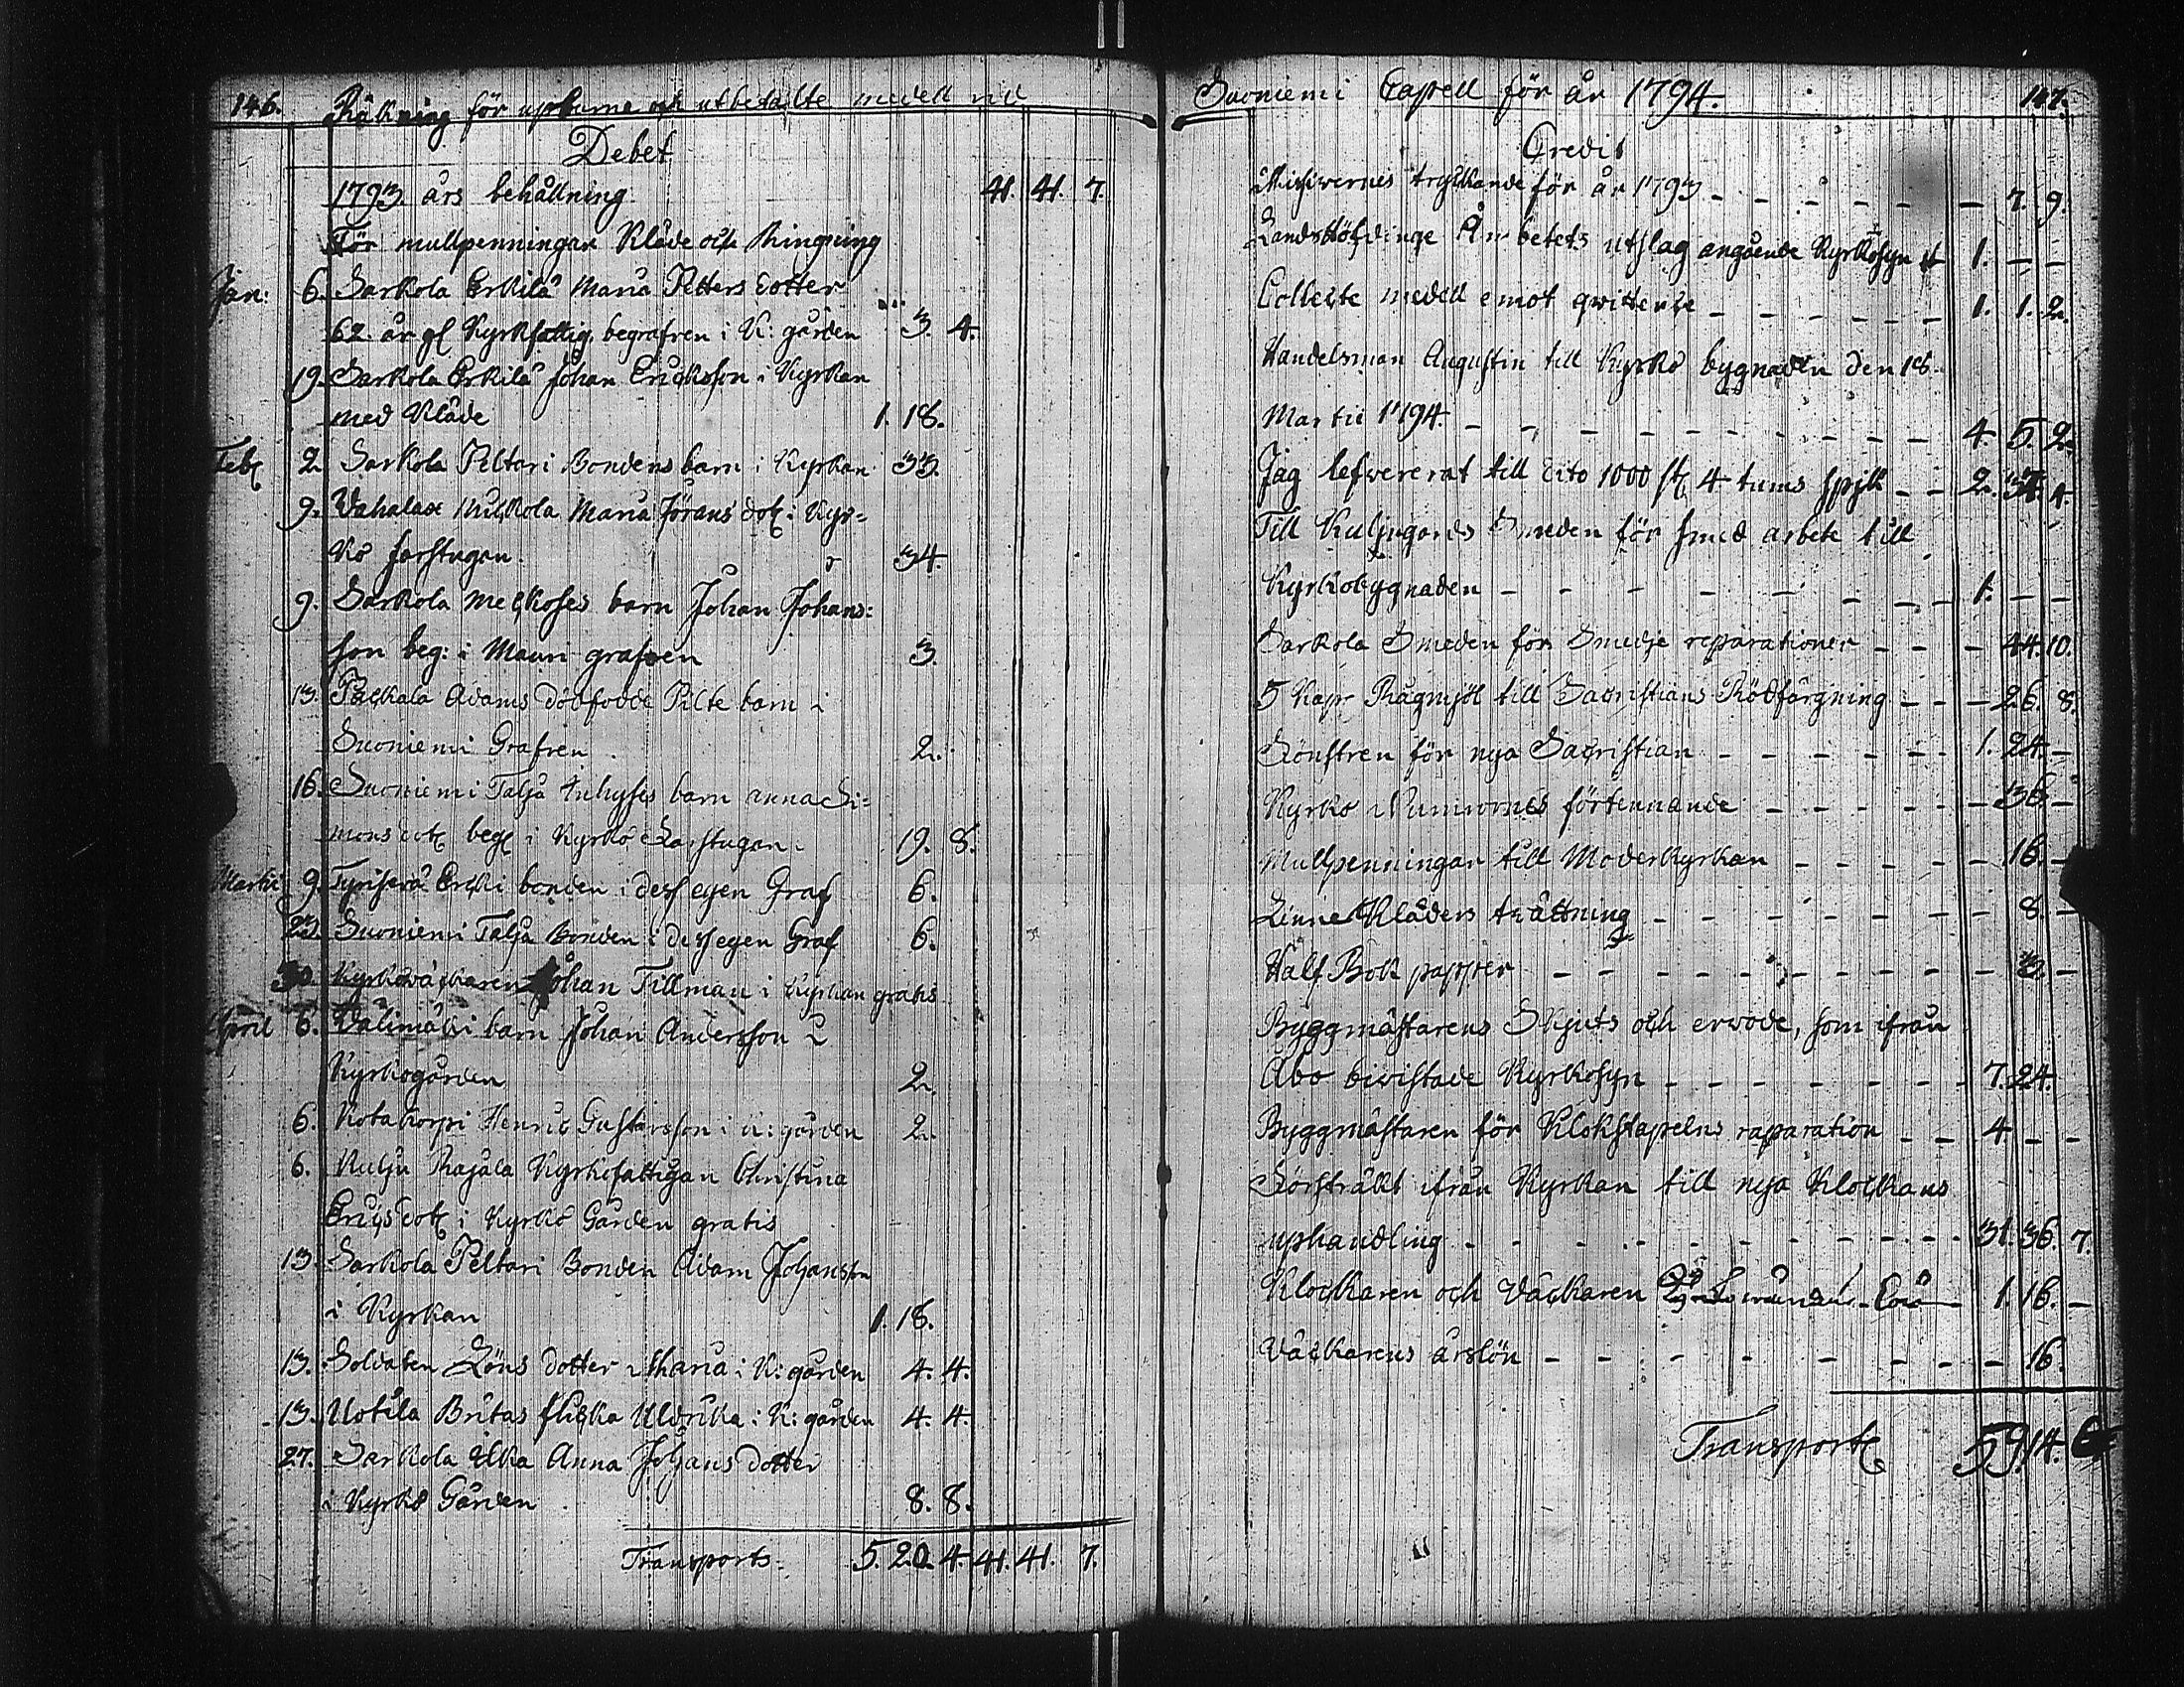 146. Räkning för upburne och utbetalte medell vid
Debet
1793 års behållning 41. 41. 7.
För mullpenningar Kläde och Ringning
Jan: 6. Sarkola Erkilä Maria Petters dotter
62 år gl Kyrkfattig begrafven i K: gården 3. 4.
19. Sarkola Erkilä Johan Ericksson i Kyrkan
med Kläde 1. 18.
Feb: 2. Sarkola Peltari Bondens barn i Kyrkan 33.
9. Vahalax Maria Jörans dot: i Kyr=
ko farstugan 34.
9. Sarkola barn Johan Johans=
son beg: i Mauri grafven 3.
13. Adams dödfödde Pilte barn i
Suoniemi Grafven 2.
16. Suoniemi Talja Inhyses barn Anna Si=
mons dot: beg: i Kyrko Farstugan 19. 8.
Martii 9. bonden i dess egen Graf 6.
23. Suoniemi Talja Bonden i dess egen Graf 6.
30. Kyrkoväckaren Johan Tillman i Kyrkan gratis
April 6. Välimäki barn Johan Andersson i
Kyrkogården 2.
6. Kotakorpi Henric Gustafsson i K: gården 2.
6. Kulju Rajala Kyrkofattigan Christina
Erics dot: i Kyrko Gården gratis
13. Sarkola Peltari Bonden Adam Johansson
i Kyrkan 1. 18.
13. Soldaten Löns dotter Maria i K: gården 4. 4.
13. Uotila Britas flicka Uldrika i K: gården 4. 4.
27. Sarkola Anna Johans dotter
i Kyrko Gården 8. 8.
Transports 5. 20. 4. 41. 41. 7.
Suoniemi Capell för år 1794. 147.
Credit
Missivernes tryckande för år 1793 - 7. 9.
Landshöfdinge Ämbetets utslag angående Kyrkosyn 1. - -
Collecte medell emot qvittence 1. 1. 2.
Handelsman Augustin till Kyrko bygnaden den 18.
Martii 1794. 4. 5. 2.
Jag lefvererat till dito 1000 st: 4 tums spik 2. 4.
Till Smeden för smed arbete till
Kyrkobygnaden 1. - -
Sarkola Smeden för Smedje reparationer - 44. 10.
5 Kapr Rågmjöl till Sacristians Rödfärgning - 26. 8.
Fönstren för nya Sacristian 1. 24. -
Kyrko förtennande - 36. -
Mullpenningar till Moderkyrkan - 16. -
Linne Kläders tvättning - 8. -
Half Bok papper - 3. -
Byggmästarens Skjuts och som ifrån
Åbo bivistade Kyrkosyn 7. 24.
Byggmästaren för Klokstapelns raparation 4. - -
Försträkt ifrån Kyrkan till nya Klockans
uphandling 31. 36. 7.
Klockaren och Väckaren 1. 16. -
Väckarens årslön - 16.
Transport 59. 14. 6